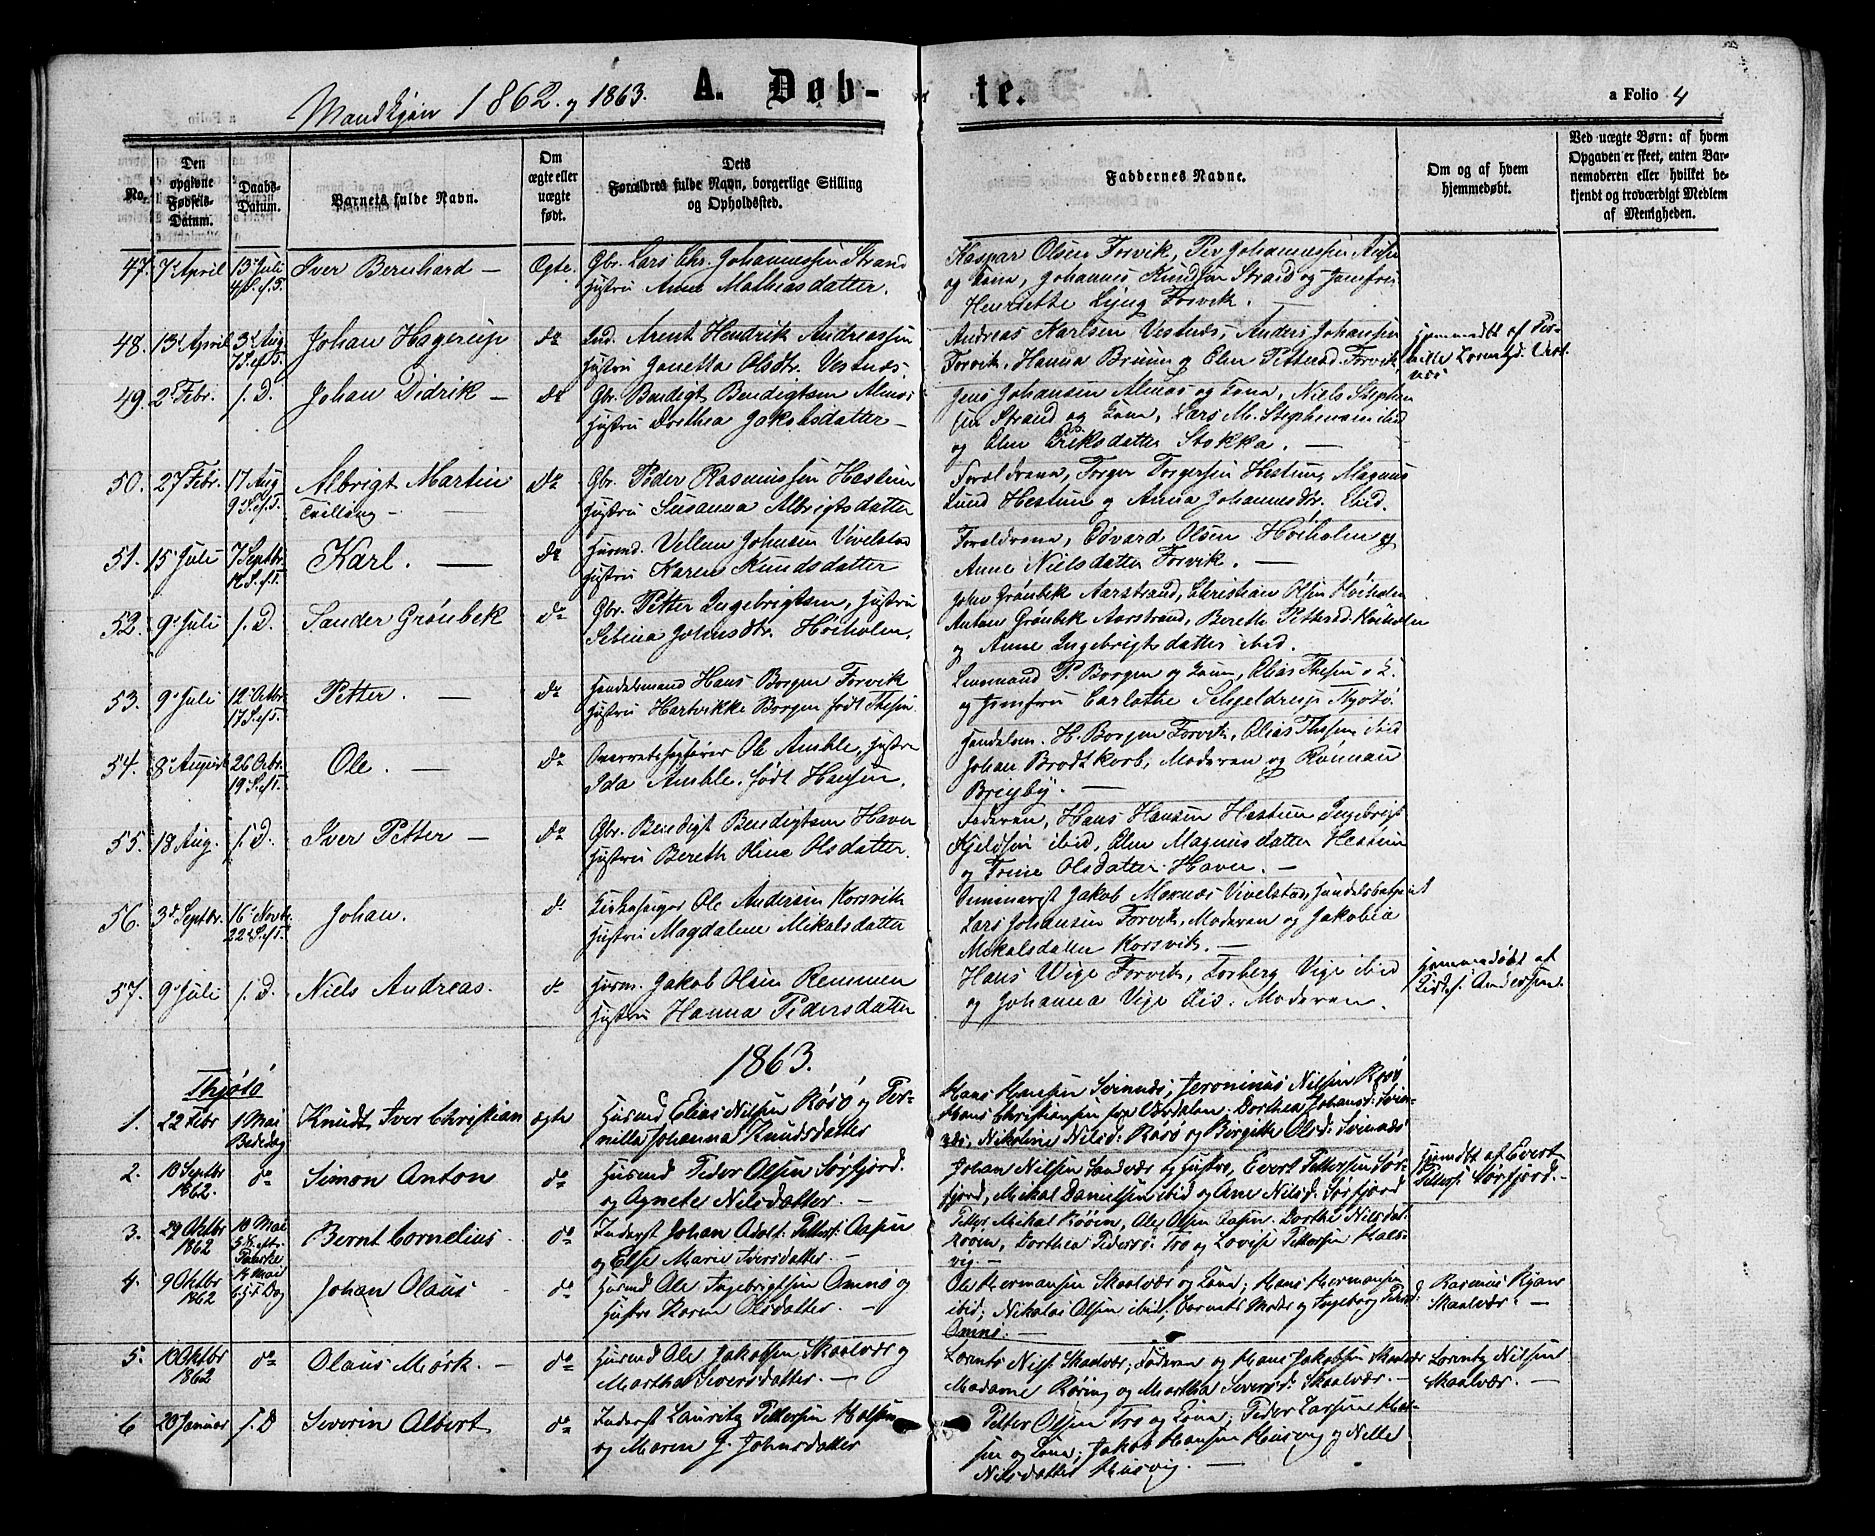 Mandkjøn 1862 og 1863. A. Døb- te. a Folio 4
No.
Den opgivne Fødsels-Datum.
Daabs-Datum.
Barnets fulde Navn.
Om ægte eller uægte født.
Dets Forældres fulde Navn, borgerlige Stilling og Opholdssted.
Faddernes Navne.
Om og af hvem hjemmedøbt.
Ved uægte Børn: af hvem Opgaven er skeet, enten Barnemoderen eller hvilket bekjendt og troværdigt Medlem af Menigheden.
47. 7 April 13 Juli Iver Bernhard — Ægte. Gbr. Lars Chr. Johannessen Strand Kaspar Olsen Forvik, Per Johannessen
4 S. e. T. Hustru Anne Mathiasdatter. og Kone, Johannes Knudsen Strand og Jomfru
Henriette Lyng Forvik. —
48. 13 April 3 Aug Johan Hagerup do Ind. Arent Hendrik Andreassen Andreas Karlsen Vestnes, Anders Johansen hjemmedøbt af Per-
7 S. e. T. Hustru Janetta Olsdtr. Vesnes. Forvik, Hanna Bruun og Elen Pettersd. Forvik nille Lorentsd. Vest-
nes
49. 2 Febr. s. D. Johan Didrik — do Gbr. Bendigt Bendigtsen Almas Jens Johansen Almas og Kone, Niels Stephen
Hustru Dorthea Jakobsdatter — sen Strand og Kone, Lars M. Stephensen ibid
og Elen Eriksdatter Stokka. —
50. 27 Febr. 17 Aug Albrigt Martin do Gbr. Peder Rasmussen Hestun Forældrene, Torger Torgersen Hestun, Magnus
9 S. e. T. Tvilling — Hustru Susanna Albrigtsdatter Lund Hestun og Anna Johannesdtr. ibid.
51. 15 Juli 7 Septbr. Karl. — do Husmd. Vellum Johnsen Vivelstad Forældrene, Edvard Olsen Høiholm og
12 S. e. T. Hustru Karen Knudsdatter Anne Nielsdatter Forvik. —
52. 9 Juli s. D. Sander Grønbek do Gbr. Petter Ingebrigtsen, Hustru John Grønbek Aarstrand, Christian Olsen Høiholm
Sebina Johnsdtr. Høiholm. Antone Grønbek Aarstrand, Berethe Pettersd. Høiholm
og Anne Ingebrigtsdatter ibid.
53. 9 Juli 12 Octbr. Petter. — do Handelsmand Hans Borgen Forvik Lensmand P. Borgen og Kone, Elias Thesen
17 S. e. T. Hustru Hartvikke Borgen født Thesen. og Jomfru Carlothe Schjeldrup Thjøtø.
54. 8 August 26 Octbr. Ole. — do Overretssagfører Ole Amble, Hustru Handelsm. H. Borgen Forvik, Elias Thesen ibid
19 S. e. T. Ida Amble født Hansen. Johan Brodtkorb, Moderen og Rønnau
55. 18 Aug. s. D. Iver Petter — do Gbr. Bendigt Bendigtsen Haven Faderen, Hans Hansen Hestun Ingebrigt
Hustru Bereth Oline Olsdatter. Kjeldsen ibid, Elen Magnusdatter Hestun
og Trine Olsdatter Haven. —
56. 3 Septbr. 16 Novbr. Johan. do Kirkesanger Ole Andersen Korsvik Seminarist Jakob Moxnæs Vivelstad, Handelsbetjent
22 S. e. T. Hustru Magdalene Mikalsdatter Lars Johansen Forvik, Moderen og Jakobia
Mikalsdatter Korsvik. —
57. 9 Juli s. D. Niels Andreas. do Husm. Jakob Olsen Remmen Hans Vige Forvik, Torberg Vige ibid hjemmedøbt af
Hustru Hanna Pedersdatter og Johanna Vige ibid. Moderen. Kirkes. Andersen.
1863.
Thjøtø
1. 22 Febr 1 Mai Knudt Iver Christian ægte Husmd Elias Nilsen Rørø og Per- Hans Hansen Svinnæs, Jeronimus Nilsen Rørø
Bededag nille Johanna Knudsdatter Hans Christiansen fra Værdalen, Dorthea Johansd: Svin-
næs, Nikoline Nilsd: Rørø og Birgitte Olsd: Svinnæs
2. 10 Septbr do Simon Anton do Husmd Peder Olsen Sørfjord. Johan Nilsen Sandvær og Hustro, Evert Pettersen Sør- Hjemdt af Evert
1862. og Agnete Nilsdatter. — fjord, Mikal Danielsen ibid og Ane Nilsd: Sørfjord Petters: Sørfjord. —
3. 29 Oktbr 10 Mai Bernt Cornelius do Inderst Johan Adolf Petters: Aasen Petter Mikal Røøen, Ole Olsen Aasen. Dorthe Nilsdat.
1862 5 S. eftr Paaske og Else Marie Iversdatter. — Røøen, Dorthea Peders: Tro og Lovise Pettersen Hals-
vig. —
4. 9 Oktbr 14 Mai Johan Olaus do Husmd Ole Ingebrigtsen Omnø og Ole Hermansen Skaalvær og Kone; Hans Hermansen Rasmus Ryan
1862 Hustro Karen Olsdatter. — ibid; Nikolai Olsen ibid; Barnets Moder og Ingeborg Pedersd: Skaalvær. —
Omnø. —
5. 10 Oktbr do Olaus Mørk. — do Husmd Ole Jakobsen Skaalvær og Lorents Nils. Skaalvær; Faderen og Hans Jakobsen Skaalvær Lorents Nilsen
1862 Martha Siversdatter. — Madame Røring og Martha Siversd: Skaalvær. — Skaalvær. —
6 20 Januar s. D Severin Albert do Inderst Lauritz Pettersen Halsen Petter Olsen Tro og Kone; Peder Larsen Hal-
og Maren J. Johnsdatter sen og Kone; Jakob Hansen Husvig og Nille
Nilsdatter Husvig. —